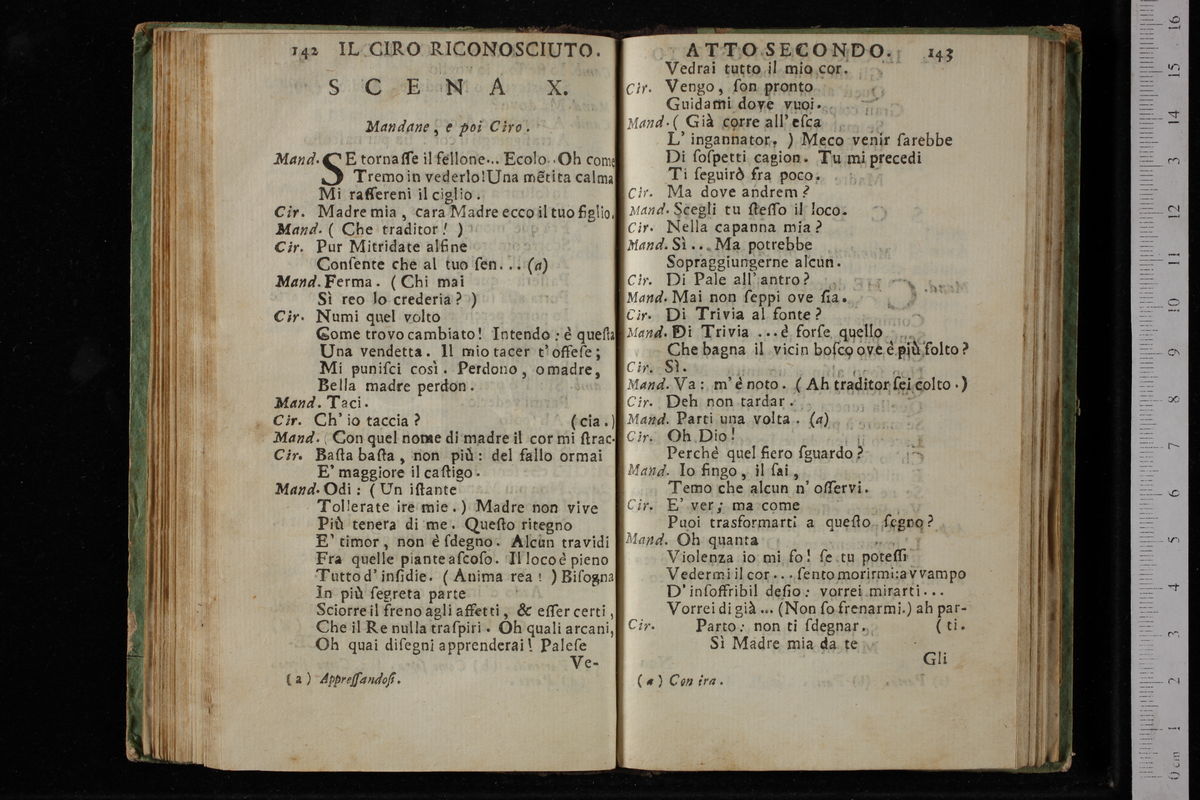 142 IL CIRO RICONOSCIUTO.
SCENA X.
Mandane, e poi Ciro.
Mand. SE tornaſſe il fellone... Ecolo. Oh come
Tremo in vederlo! Una mẽtita calma
Mi raſſereni il ciglio.
Cir. Madre mia, cara Madre ecco il tuo figlio.
Mand. (Che traditor!)
Cir. Pur Mitridate alfine
Conſente che al tuo ſen... (a)
Mand. Ferma. (Chi mai
Sì reo lo crederia?)
Cir. Numi quel volto
Come trovo cambiato! Intendo: è queſta
Una vendetta. Il mio tacer t'offeſe;
Mi puniſci così. Perdono, o madre,
Bella madre perdon.
Mand. Taci.
Cir. Ch'io taccia? (cia.)
Mand. Con quel nome di madre il cor mi ſtrac-
Cir. Baſta baſta, non più: del fallo ormai
E' maggiore il caſtigo.
Mand. Odi: (Un iſtante
Tollerate ire mie.) Madre non vive
Più tenera di me. Queſto ritegno
E' timor, non è ſdegno. Alcun travidi
Fra quelle piante aſcoſo. Il loco è pieno
Tutto d'inſidie. (Anima rea!) Biſogna
In più ſegreta parte
Sciorre il freno agli affetti, & eſſer certi,
Che il Re nulla traſpiri. Oh quali arcani,
Oh quai diſegni apprenderai! Paleſe
Ve-
(a) Appreſſandoſi.
ATTO SECONDO. 143
Vedrai tutto il mio cor.
Cir. Vengo, ſon pronto
Guidami dove vuoi.
Mand. (Già corre all'eſca
L'ingannator.) Meco venir ſarebbe
Di ſoſpetti cagion. Tu mi precedi
Ti ſeguirò fra poco.
Cir. Ma dove andrem?
Mand. Scegli tu ſteſſo il loco.
Cir. Nella capanna mia?
Mand. Sì... Ma potrebbe
Sopraggiungerne alcun.
Cir. Di Pale all'antro?
Mand. Mai non ſeppi ove ſia.
Cir. Di Trivia al fonte?
Mand. Di Trivia ...è forſe quello
Che bagna il vicin boſco ove è più folto?
Cir. Sì.
Mand. Va: m'è noto. (Ah traditor ſei colto.)
Cir. Deh non tardar.
Mand. Parti una volta. (a)
Cir. Oh Dio!
Perchè quel fiero ſguardo?
Mand. Io fingo, il ſai,
Temo che alcun n'oſſervi.
Cir. E' ver; ma come
Puoi trasformarti a queſto ſegno?
Mand. Oh quanta
Violenza io mi fo! ſe tu poteſſi
Vedermi il cor... ſento morirmi: avvampo
D'inſoffribil deſio: vorrei mirarti...
Vorrei di già... (Non ſo frenarmi.) ah par-
Cir. Parto: non ti ſdegnar. (ti.
Sì Madre mia da te
Gli
(a) Con ira.